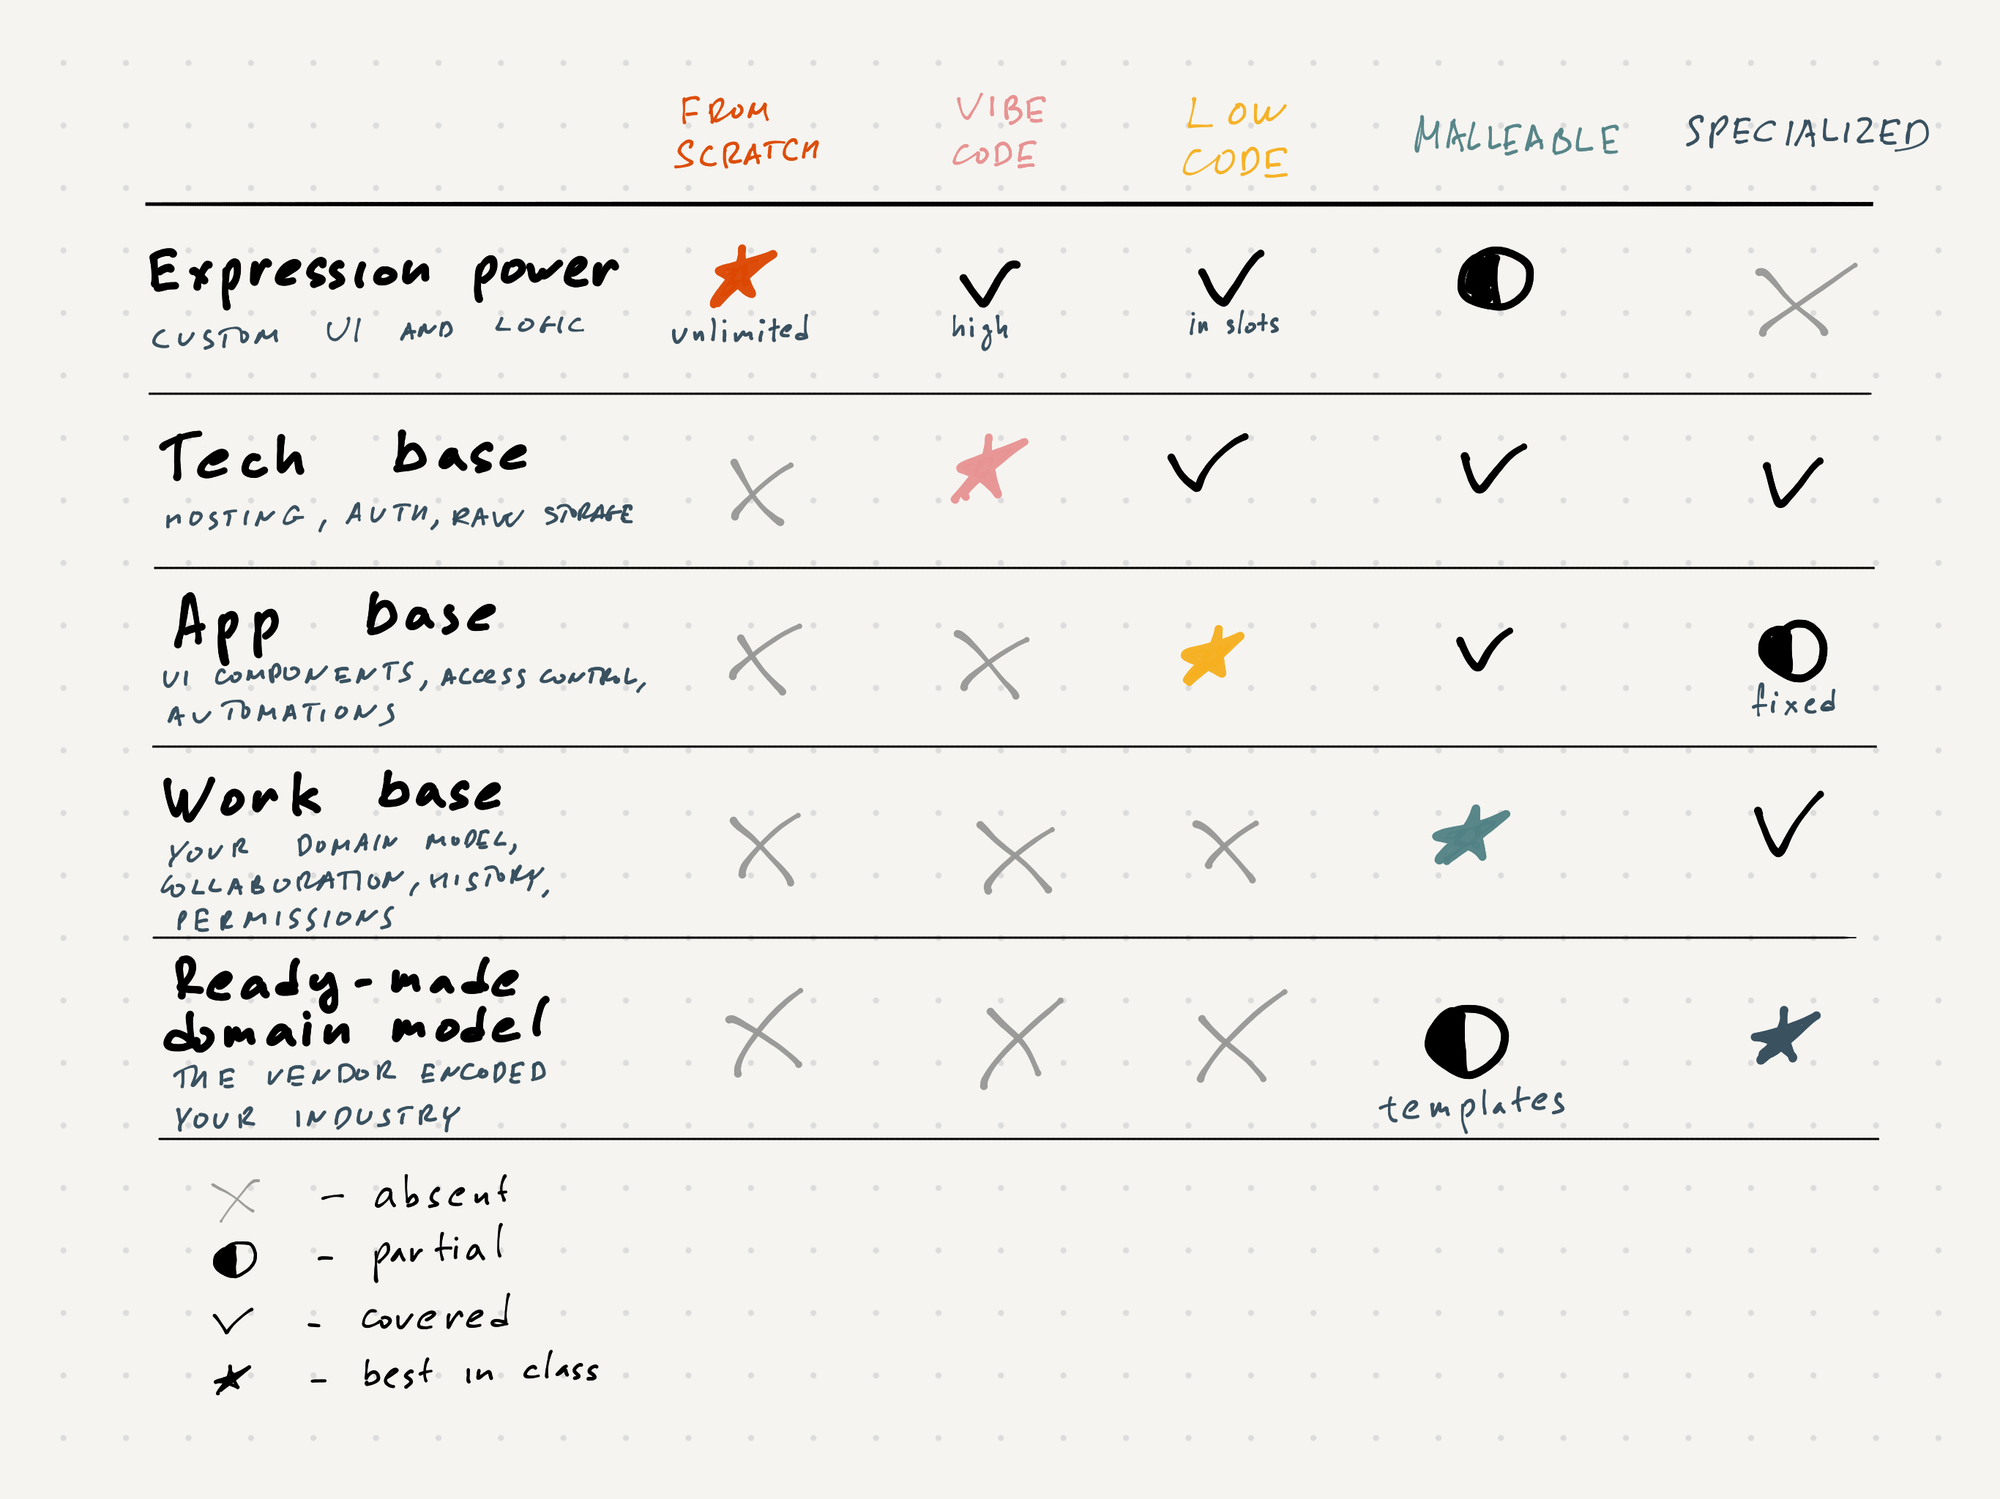 FROM SCRATCH
VIBE CODE
LOW CODE
MALLEABLE
SPECIALIZED
Expression power
CUSTOM UI AND LOGIC
unlimited
high
in slots
Tech base
HOSTING, AUTH, RAW STORAGE
App base
UI COMPONENTS, ACCESS CONTROL,
AUTOMATIONS
fixed
Work base
YOUR DOMAIN MODEL,
COLLABORATION, HISTORY,
PERMISSIONS
Ready-made
domain model
THE VENDOR ENCODED
YOUR INDUSTRY
templates
- absent
- partial
- covered
- best in class